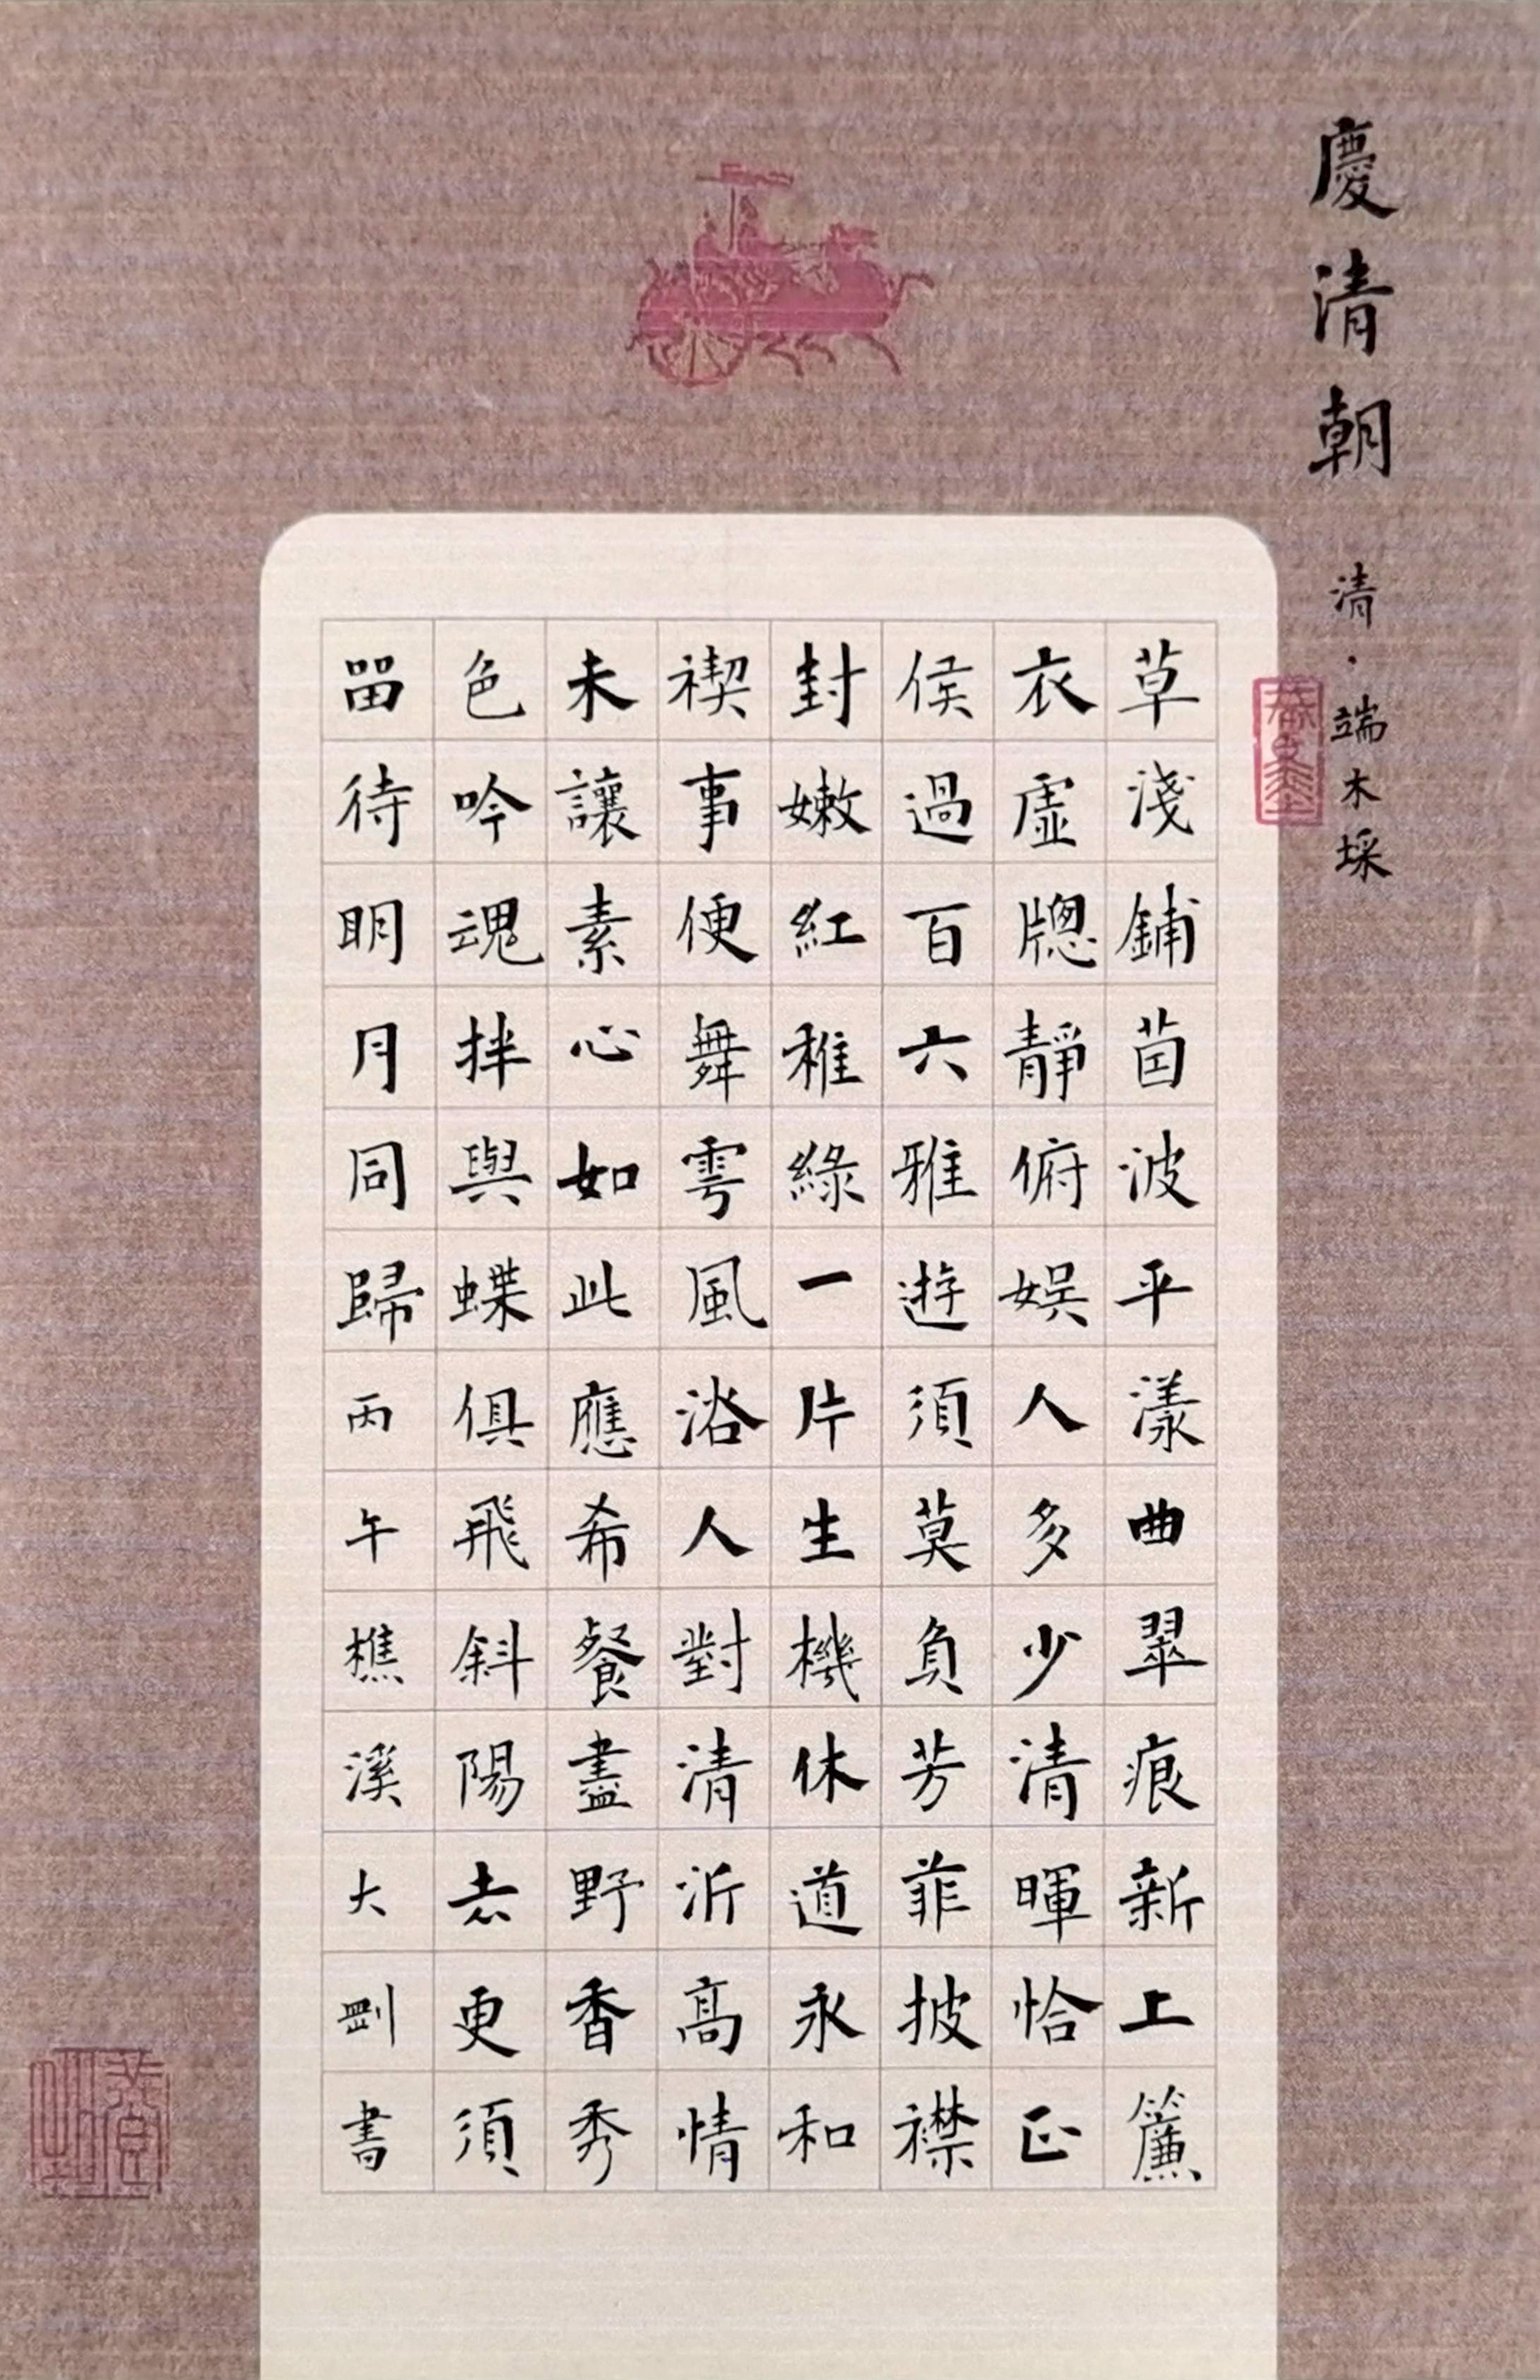 慶清朝
清·端木埰
草淺鋪茵波平漾曲翠痕新上簾
衣虛牕靜俯娛人多少清暉恰正
侯過百六雅遊須莫負芳菲披襟
封嫩紅稚綠一片生機休道永和
禊事便舞雩風浴人對清沂高情
未讓素心如此應希餐盡野香秀
色吟魂拌與蝶俱飛斜陽去更須
畱待明月同歸丙午樵溪大剛書